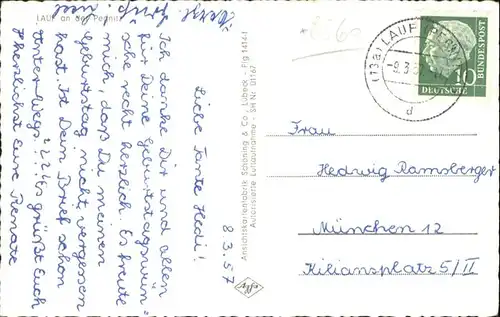 LAUF an der Pegnitz
8.3.57
Liebe Tante Hedi!
Ich danke Dir und allen
für Deine Geburtstagswün-
sche recht herzlich. Es freute
mich, daß Du meinen
Geburtstag nicht vergessen
hast. Ist Dein Brief schon
unter-
wegs?
grüßt Euch
herzlichst Eure Renate
Ansichtskartenfabrik Schöning & Co., Lübeck - Flg 1414-1
Autorisierte Luftaufnahme - SH Nr. 01167
(13a) LAUF (PEGN
-9.3.5
d
10
DEUTSCHE
BUNDESPOST
Frau
Hedwig Ramsberger
München 12
Kiliansplatz 5/II